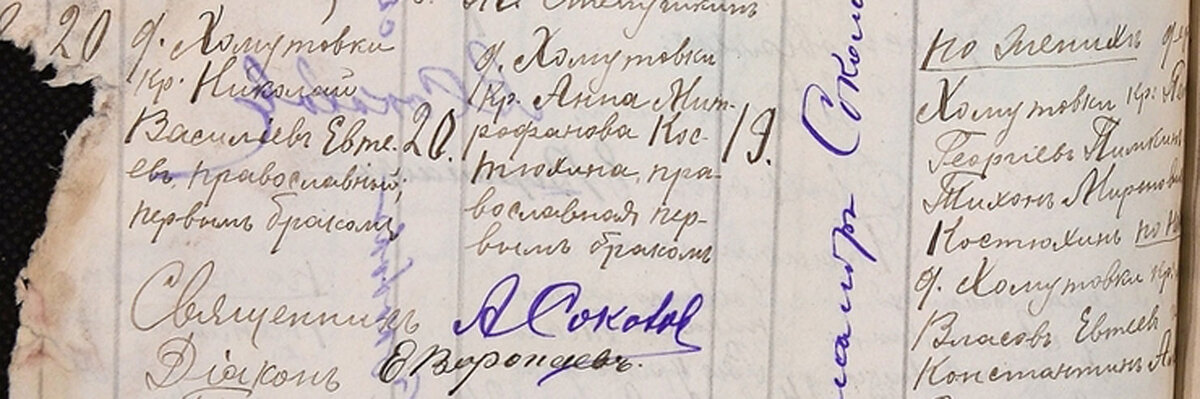 20
д. Хомутовки
кр. Николай
Василіевъ Евте-
евъ, православный,
первымъ бракомъ
20.
д. Хомутовки
кр. Анна Мит-
рофанова Кос-
тюхина, пра-
вославная пер-
вымъ бракомъ
19.
по женихѣ
Хомутовки кр:
Георгіевъ
Тихонъ
Костюхинъ
д. Хомутовки кр:
Власовъ Евтеевъ
Константинъ
Священникъ А Соколов
Діаконъ Е Воропаевъ.